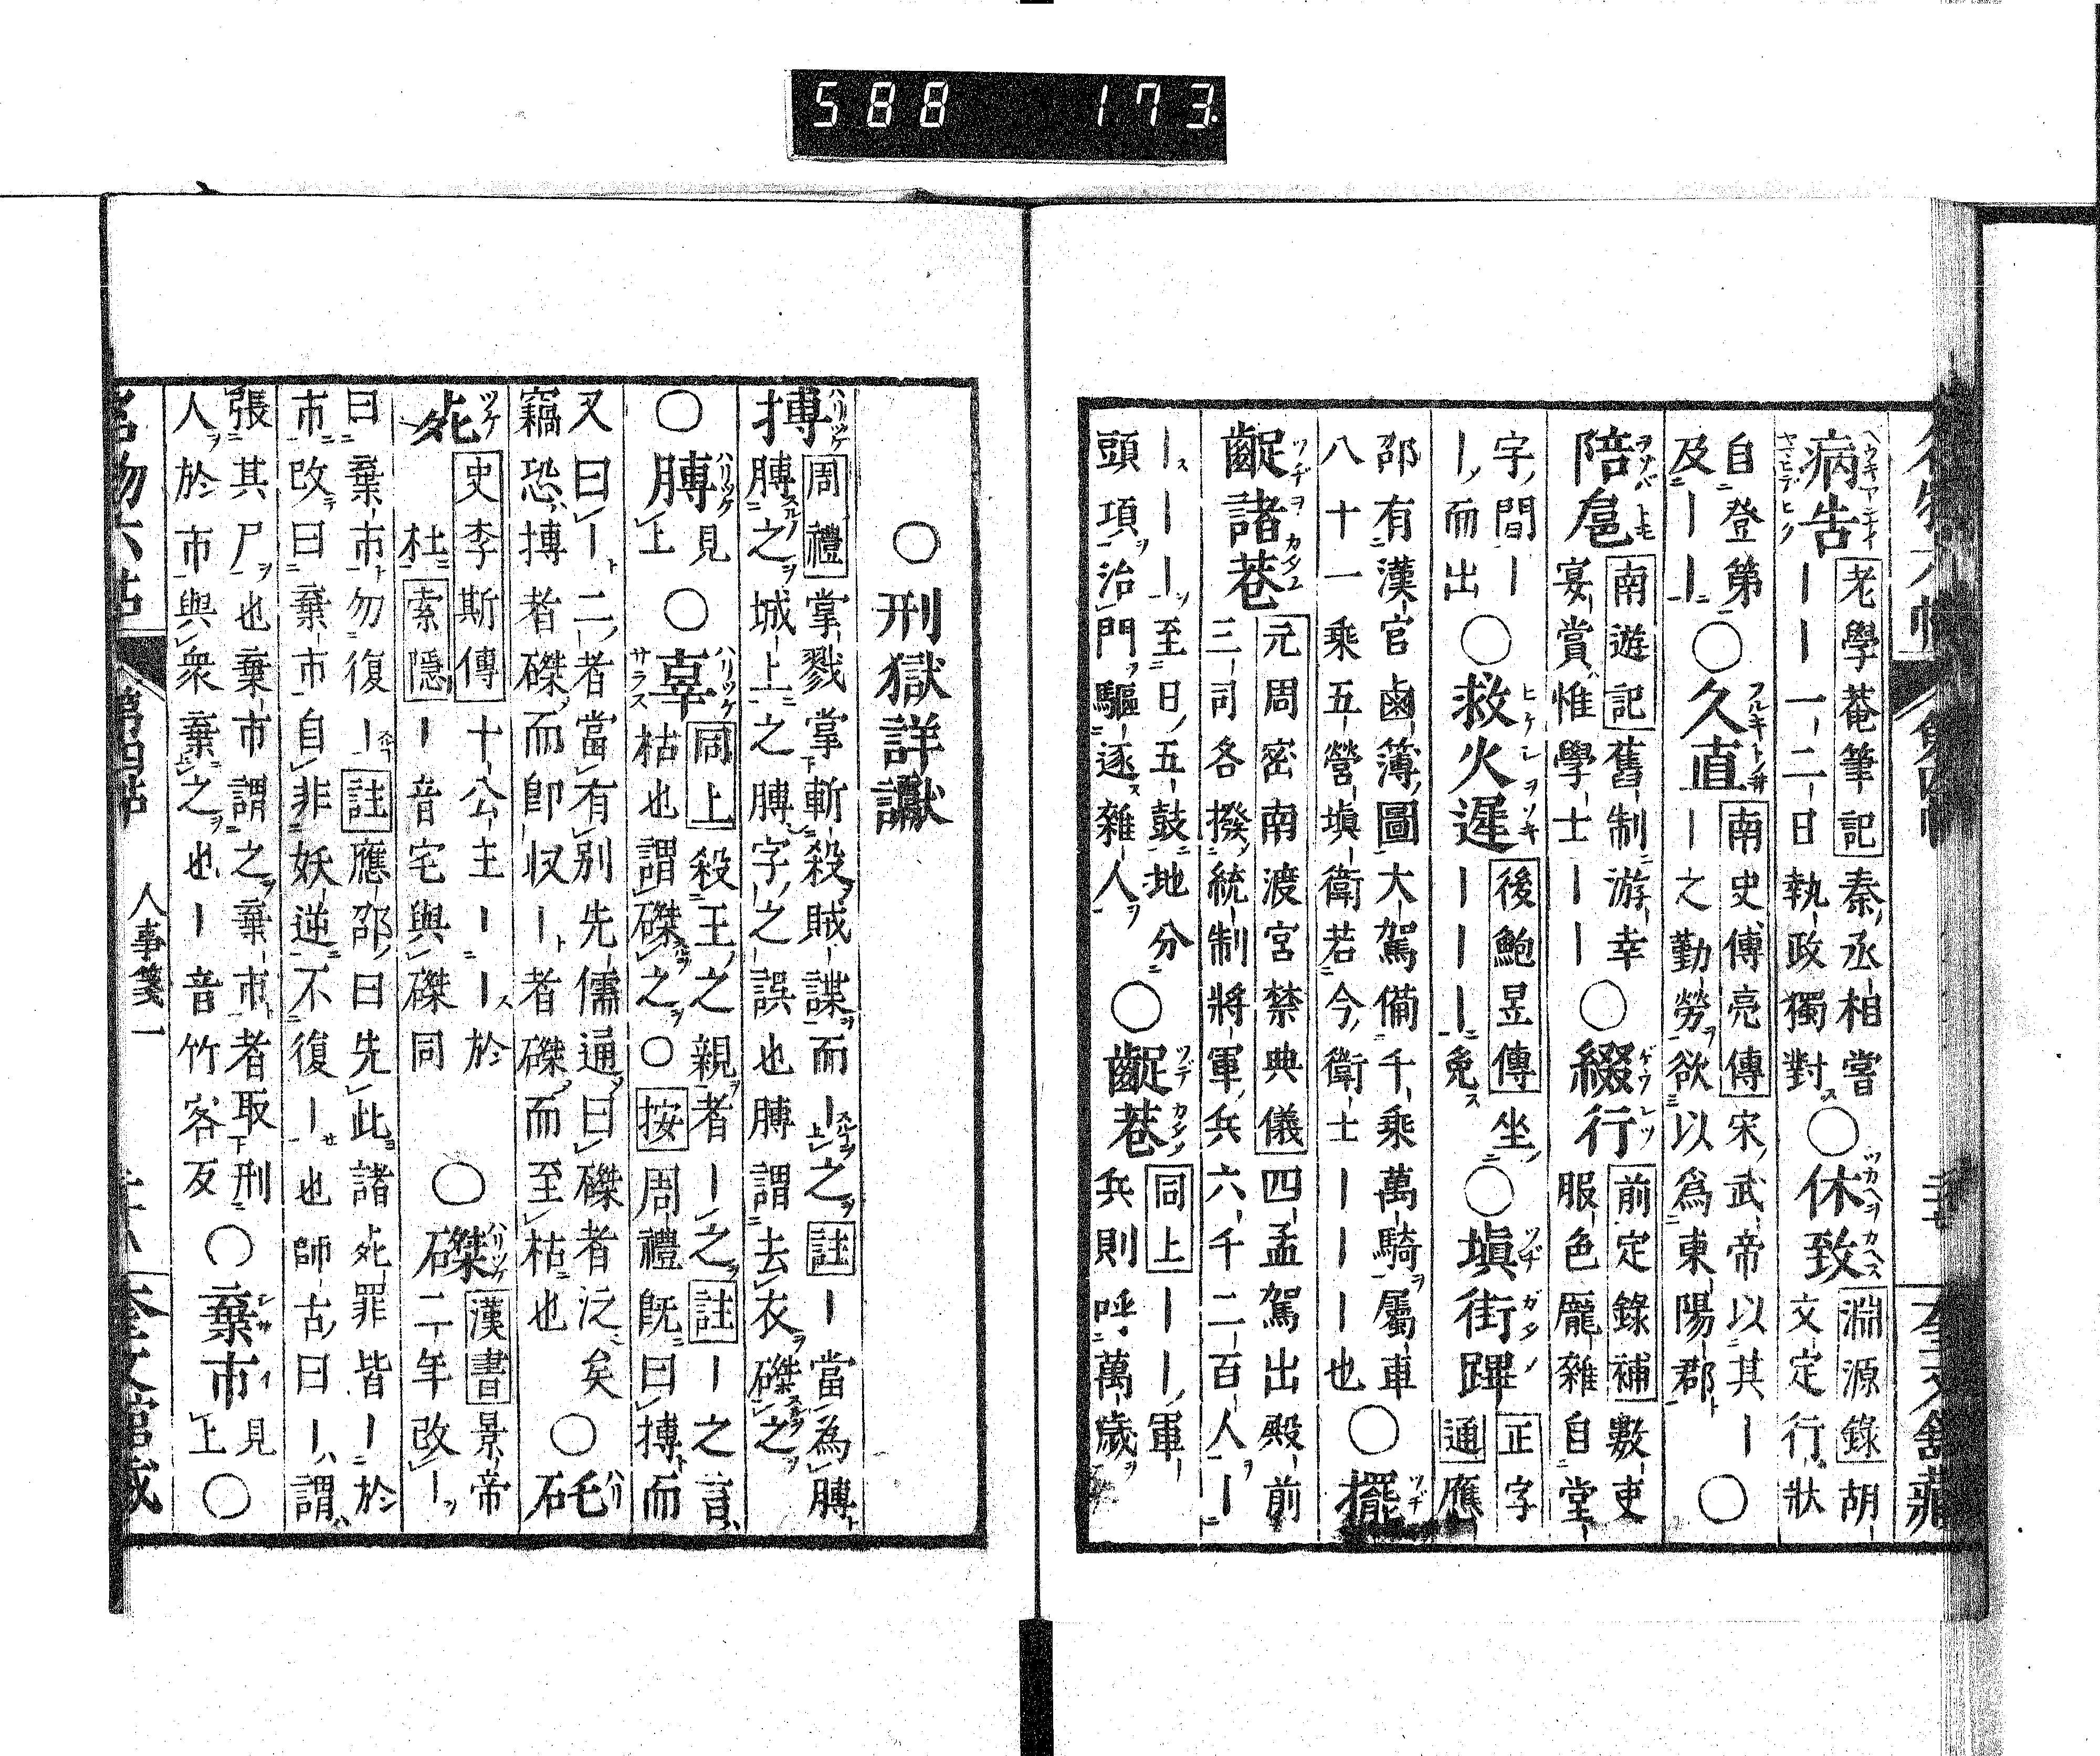 588 173
病告 老學菴筆記 秦丞相嘗
ーー一二日執政獨對
○休致 淵源錄 胡
文定行狀
自登第
及ーー
○久直 南史傅亮傳 宋武帝以其ー
ー之勤勞欲以為東陽郡 ○
陪扈 南遊記 舊制游幸
宴賞惟學士ーー
○綴行 前定錄補 數吏
服色龎雜自堂
字間ー
ー而出
○救火遲 後鮑昱傳 坐
ーーー免
○塡街蹕 正字
通 應
邵有漢官鹵簿圖大駕備千乘萬騎屬車
八十一乘五營塡衛若今衛士ーーー也 ○擺
齪諸巷 元周密南渡宮禁典儀 四孟駕出殿前
三司各撥統制將軍兵六千二百人ー
ーーー至日五鼓地分
頭項治門驅逐雜人
○齪巷 同上 ーー軍
兵則呼萬歲
○刑獄詳讞
搏 周禮 掌戮掌斬殺賊諜而ー之 註 ー當為膊
膊之城上之膊字之誤也膊謂去衣磔之
○膊 見
上
○辜 同上 殺王之親者ー之 註 ー之言
枯也謂磔之○ 按 周禮既曰搏而
又曰ー二者當有別先儒通曰磔者泛矣
竊恐搏者磔而卽収ー者磔而至枯也
○矺
死 史李斯傳 十公主ーー於
杜 索隱 ー音宅與磔同
○磔 漢書 景帝
二年改ー
曰棄市勿復ー 註 應邵曰先此諸死罪皆ー於
市改曰棄市自非妖逆不復ー也師古曰ー謂
張其尸也棄市謂之棄市者取刑
人於市與衆棄之也ー音竹客反
○棄市 見
上 ○
第四帖 人事箋一